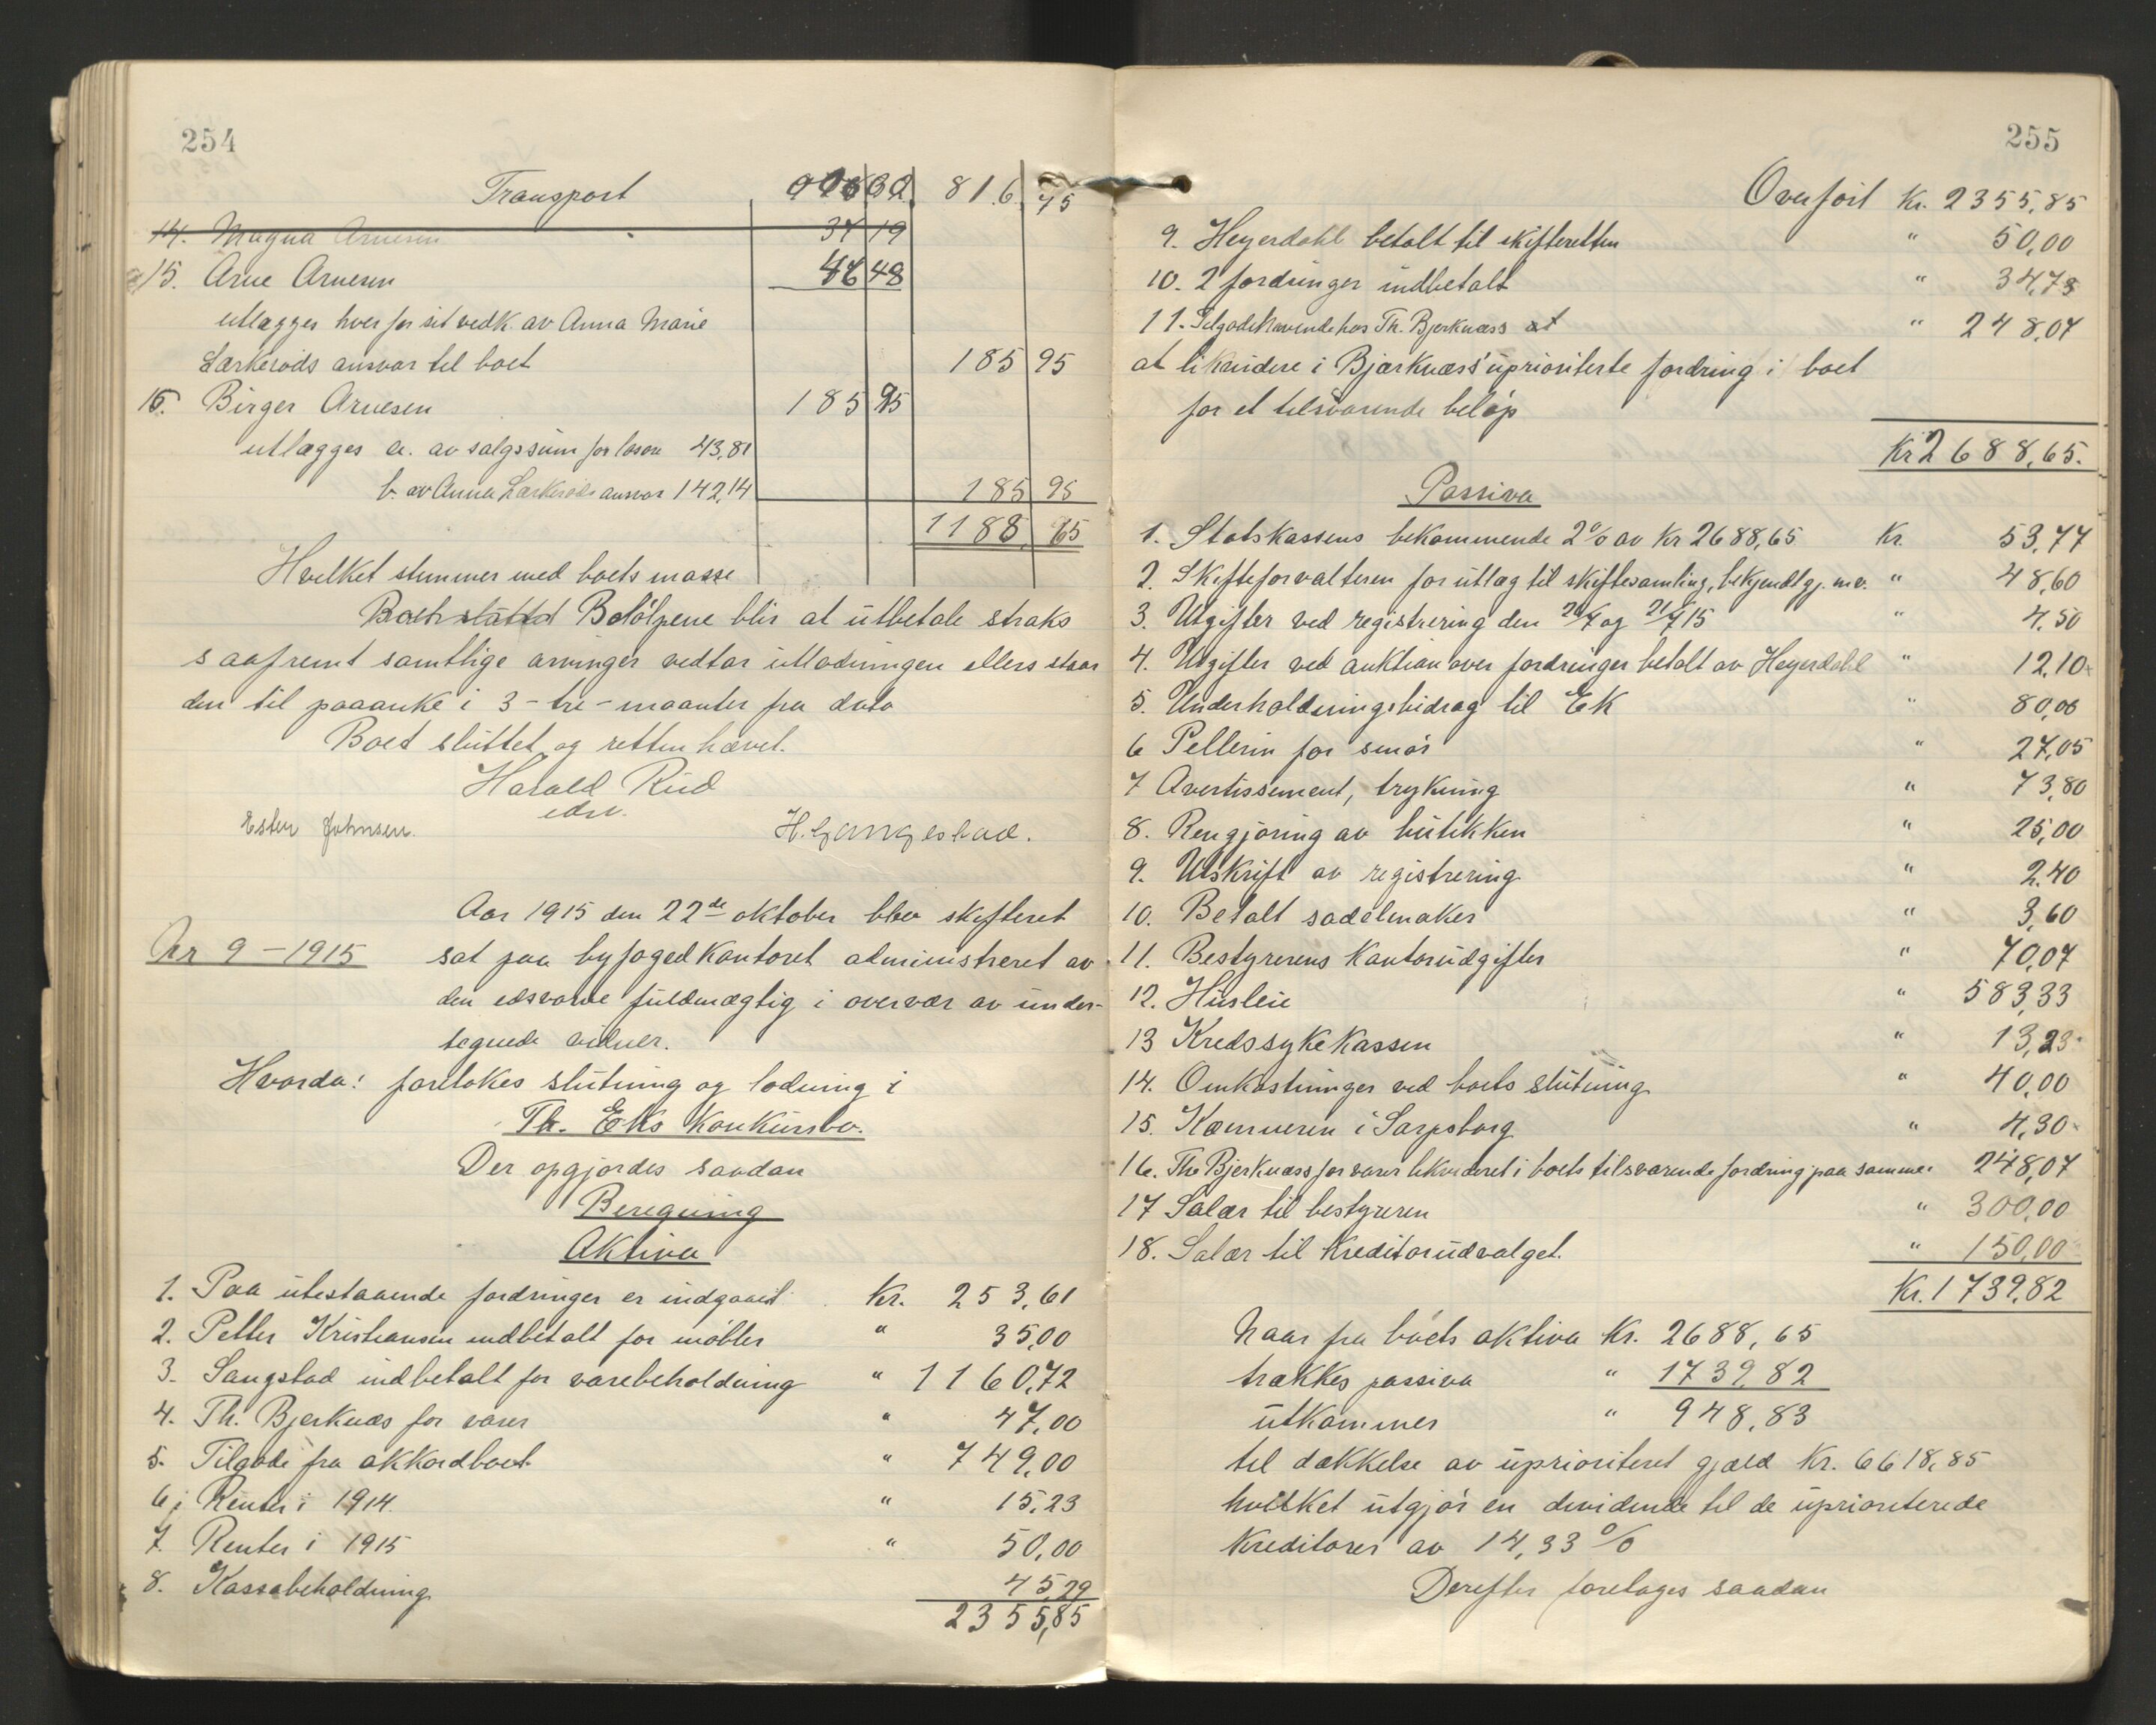 254
Transport 816 75
14. Magna Arnesen 37 19
15. Arne Arnesen 48
utlægges hver for sit vedk. av Anna Marie
Lærkerøds ansvar til boet 185 95
16. Birger Arnesen 185 95
utlægges a. av salgssum for løsøre 43,81
b. av Anna Lærkerøds ansvar 142,14 185 95
1188 65
Hvilket stemmer med boets masse
Boet sluttet Beløpene blir at utbetale straks
saafremt samtlige arvinger vedtar utlodningen ellers staar
den til paaanke i 3 - tre - maanter fra dato
Boet sluttet og retten hævet.
Harald Rud
edsv.
Ester Johnsen. H. Gangestad.
Aar 1915 den 22de oktober blev skifteret
Nr 9 - 1915 sat paa byfogedkontoret administreret av
den edsvorne fuldmægtig i overvær av under-
tegnede vidner.
Hvorda: foretokes slutning og lodning i
Th. Eks konkursbo.
Der opgjordes saadan
Beregning
Aktiva
1. Paa utestaaende fordringer er indgaaet Kr. 253,61
2. Petter Kristiansen indbetalt for møbler " 35,00
3. Sangstad indbetalt for varebeholdning " 1160,72
4. Th. Bjerknæs for varer " 47,00
5. Tilgode fra akkordboet " 749,00
6. Renter i 1914. " 15,23
7. Renter i 1915 " 50,00
8. Kassabeholdning 45,29
2355,85
255
Overført Kr. 2355,85
9. Heyerdahl betalt til skifteretten " 50,00
10. 2 fordringer indbetalt " 34,73
11. Tilgodehavende hos Th. Bjerknæss at " 248,07
at likvidere i Bjærknæss' uprioriterte fordring i boet
for et tilsvarende beløp
Kr 2688,65.
Passiva
1. Statskassens bekommende 2% av Kr 2688,65 Kr. 53,77
2. Skifteforvalteren for utlæg til skiftesamling, bekjendtgj. m.v. " 48,60
3. Utgifter ved registrering den og 15 " 4,50
4. Utgifter ved auktion over fordringer betalt av Heyerdahl " 12,10
5. Underholdningsbidrag til Ek " 80,00
6 Pellerin for smør " 27,05
7 Avertissement, trykning " 73,80
8. Rengjøring av butikken " 25,00
9. Utskrift av registrering " 2.40
10. Betalt sadelmaker " 3,60
11. Bestyrerens kontorudgifter " 70,07
12. Husleie " 583,33
13 Kredssykekassen " 13,23
14. Omkostninger ved boets slutning " 40,00
15. Kæmneren i Sarpsborg " 4,30
16. Th. Bjerknæss for varer likvideret i boets tilsvarende fordring paa samme " 248,07
17 Salær til bestyreren " 300,00
18. Salær til kreditorudvalget. " 150,00
Kr. 1739,82
Naar fra boets aktiva Kr. 2688,65
trækkes passiva " 1739,82
utkommer " 948,83
til dækkelse av uprioriteret gjæld Kr. 6618,85
hvilket utgjør en devidende til de uprioriterede
kreditorer av 14,33 %
Derefter foretages saadan